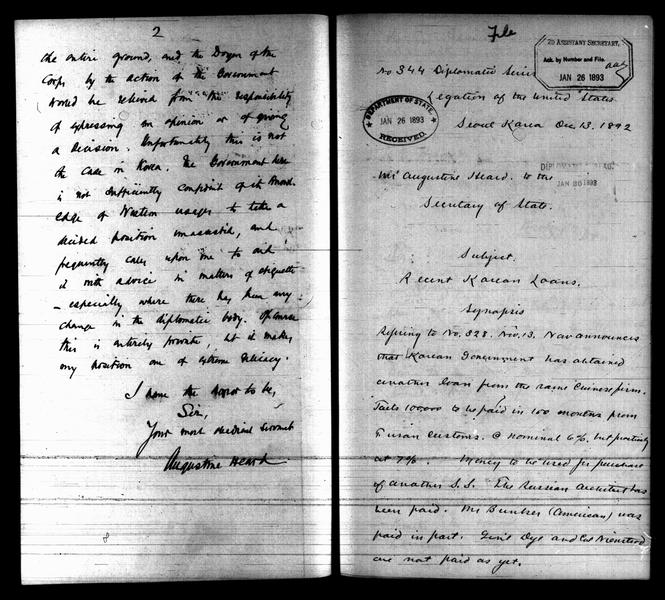 2
the entire ground, and the Doyen of the
Corps by the action of the Government
would be relieved from the responsibility
of expressing an opinion or of giving
a decision. Unfortunately this is not
the case in Korea. The Government here
is not sufficiently confident of its knowl-
edge of Western usages to take a
decided position unassisted, and
frequently calls upon me to aid
it with advice in matters of etiquette
- especially where there has been any
change in the diplomatic body. Of course
this is entirely private, but it makes
my position one of extreme delicacy.
I have the honor to be,
Sir,
Your most obedient servant
Augustine Heard
8
File
2D ASSISTANT SECRETARY,
Ack. by Number and File.
JAN 26 1893
No 344 Diplomatic Series
Legation of the United States
DEPARTMENT OF STATE,
JAN 26 1893
RECEIVED.
Seoul Korea Dec 13. 1892
JAN 26 1893
Mr Augustine Heard. to the
Secretary of State.
Subject.
Recent Korean Loans.
Synopsis
Refering to No. 328. Nov. 13. Now announces
that Korean Government has obtained
another loan from the same Chinese firm.
Taels 100,000 to be paid in 100 months from
Fusan customs. @ nominal 6%, but practically
at 7%. Money to be used for purchase
of another S.S. The Russian Architect has
been paid. Mr Bunker (American) was
paid in part. Gen'l Dye and Col Nienstead
are not paid as yet.